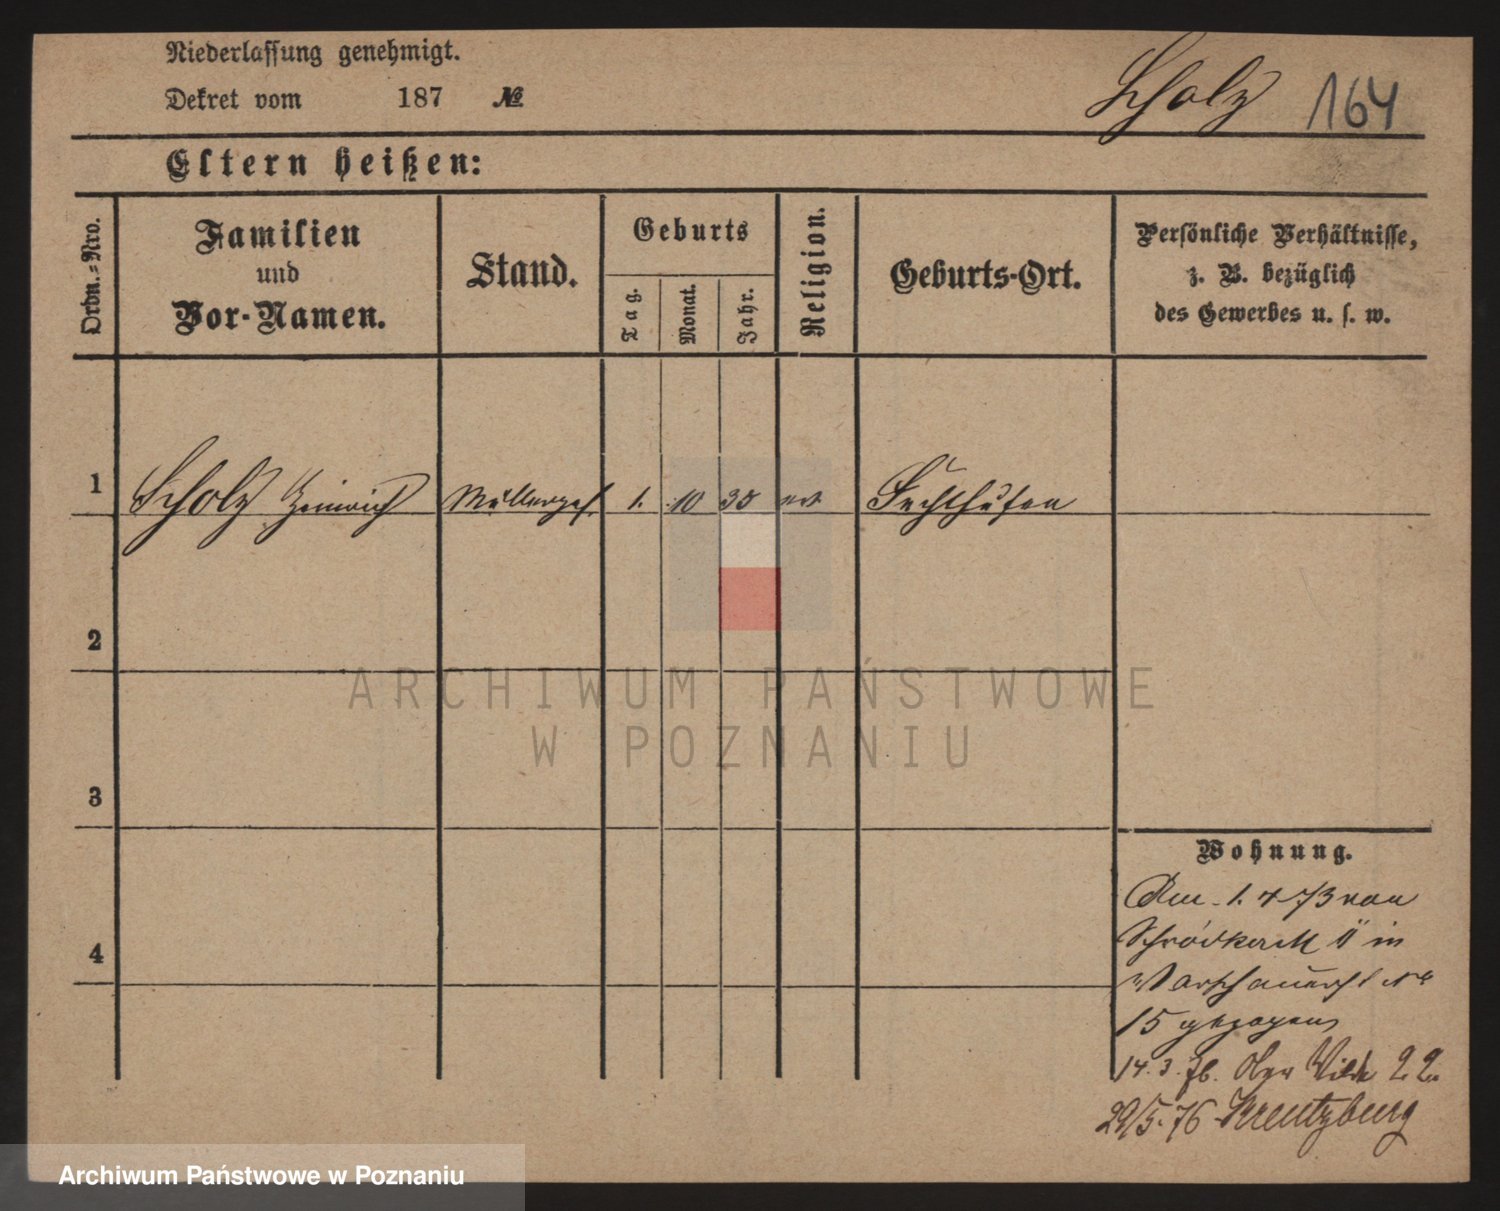 Niederlassung genehmigt.
Dekret vom 187 №
Scholz 164
Eltern heißen:
Ordn.=Nro.
Familien
und
Vor-Namen.
Stand.
Geburts
Tag.
Monat.
Jahr.
Religion.
Geburts-Ort.
Persönliche Verhältnisse,
z. B. bezüglich
des Gewerbes u. s. w.
1 Scholz Heinrich Müllerges. 1. 10 35
2
ARCHIWUM PAŃSTWOWE
W POZNANIU
3
Wohnung.
Am 1. 4 73 von
Schrodkermkt 11 in
4
Warschauerst No
15 gezogen
14. 3. 76. Ober Wilda 22.
29/5. 76 Kreutzburg
Archiwum Państwowe w Poznaniu